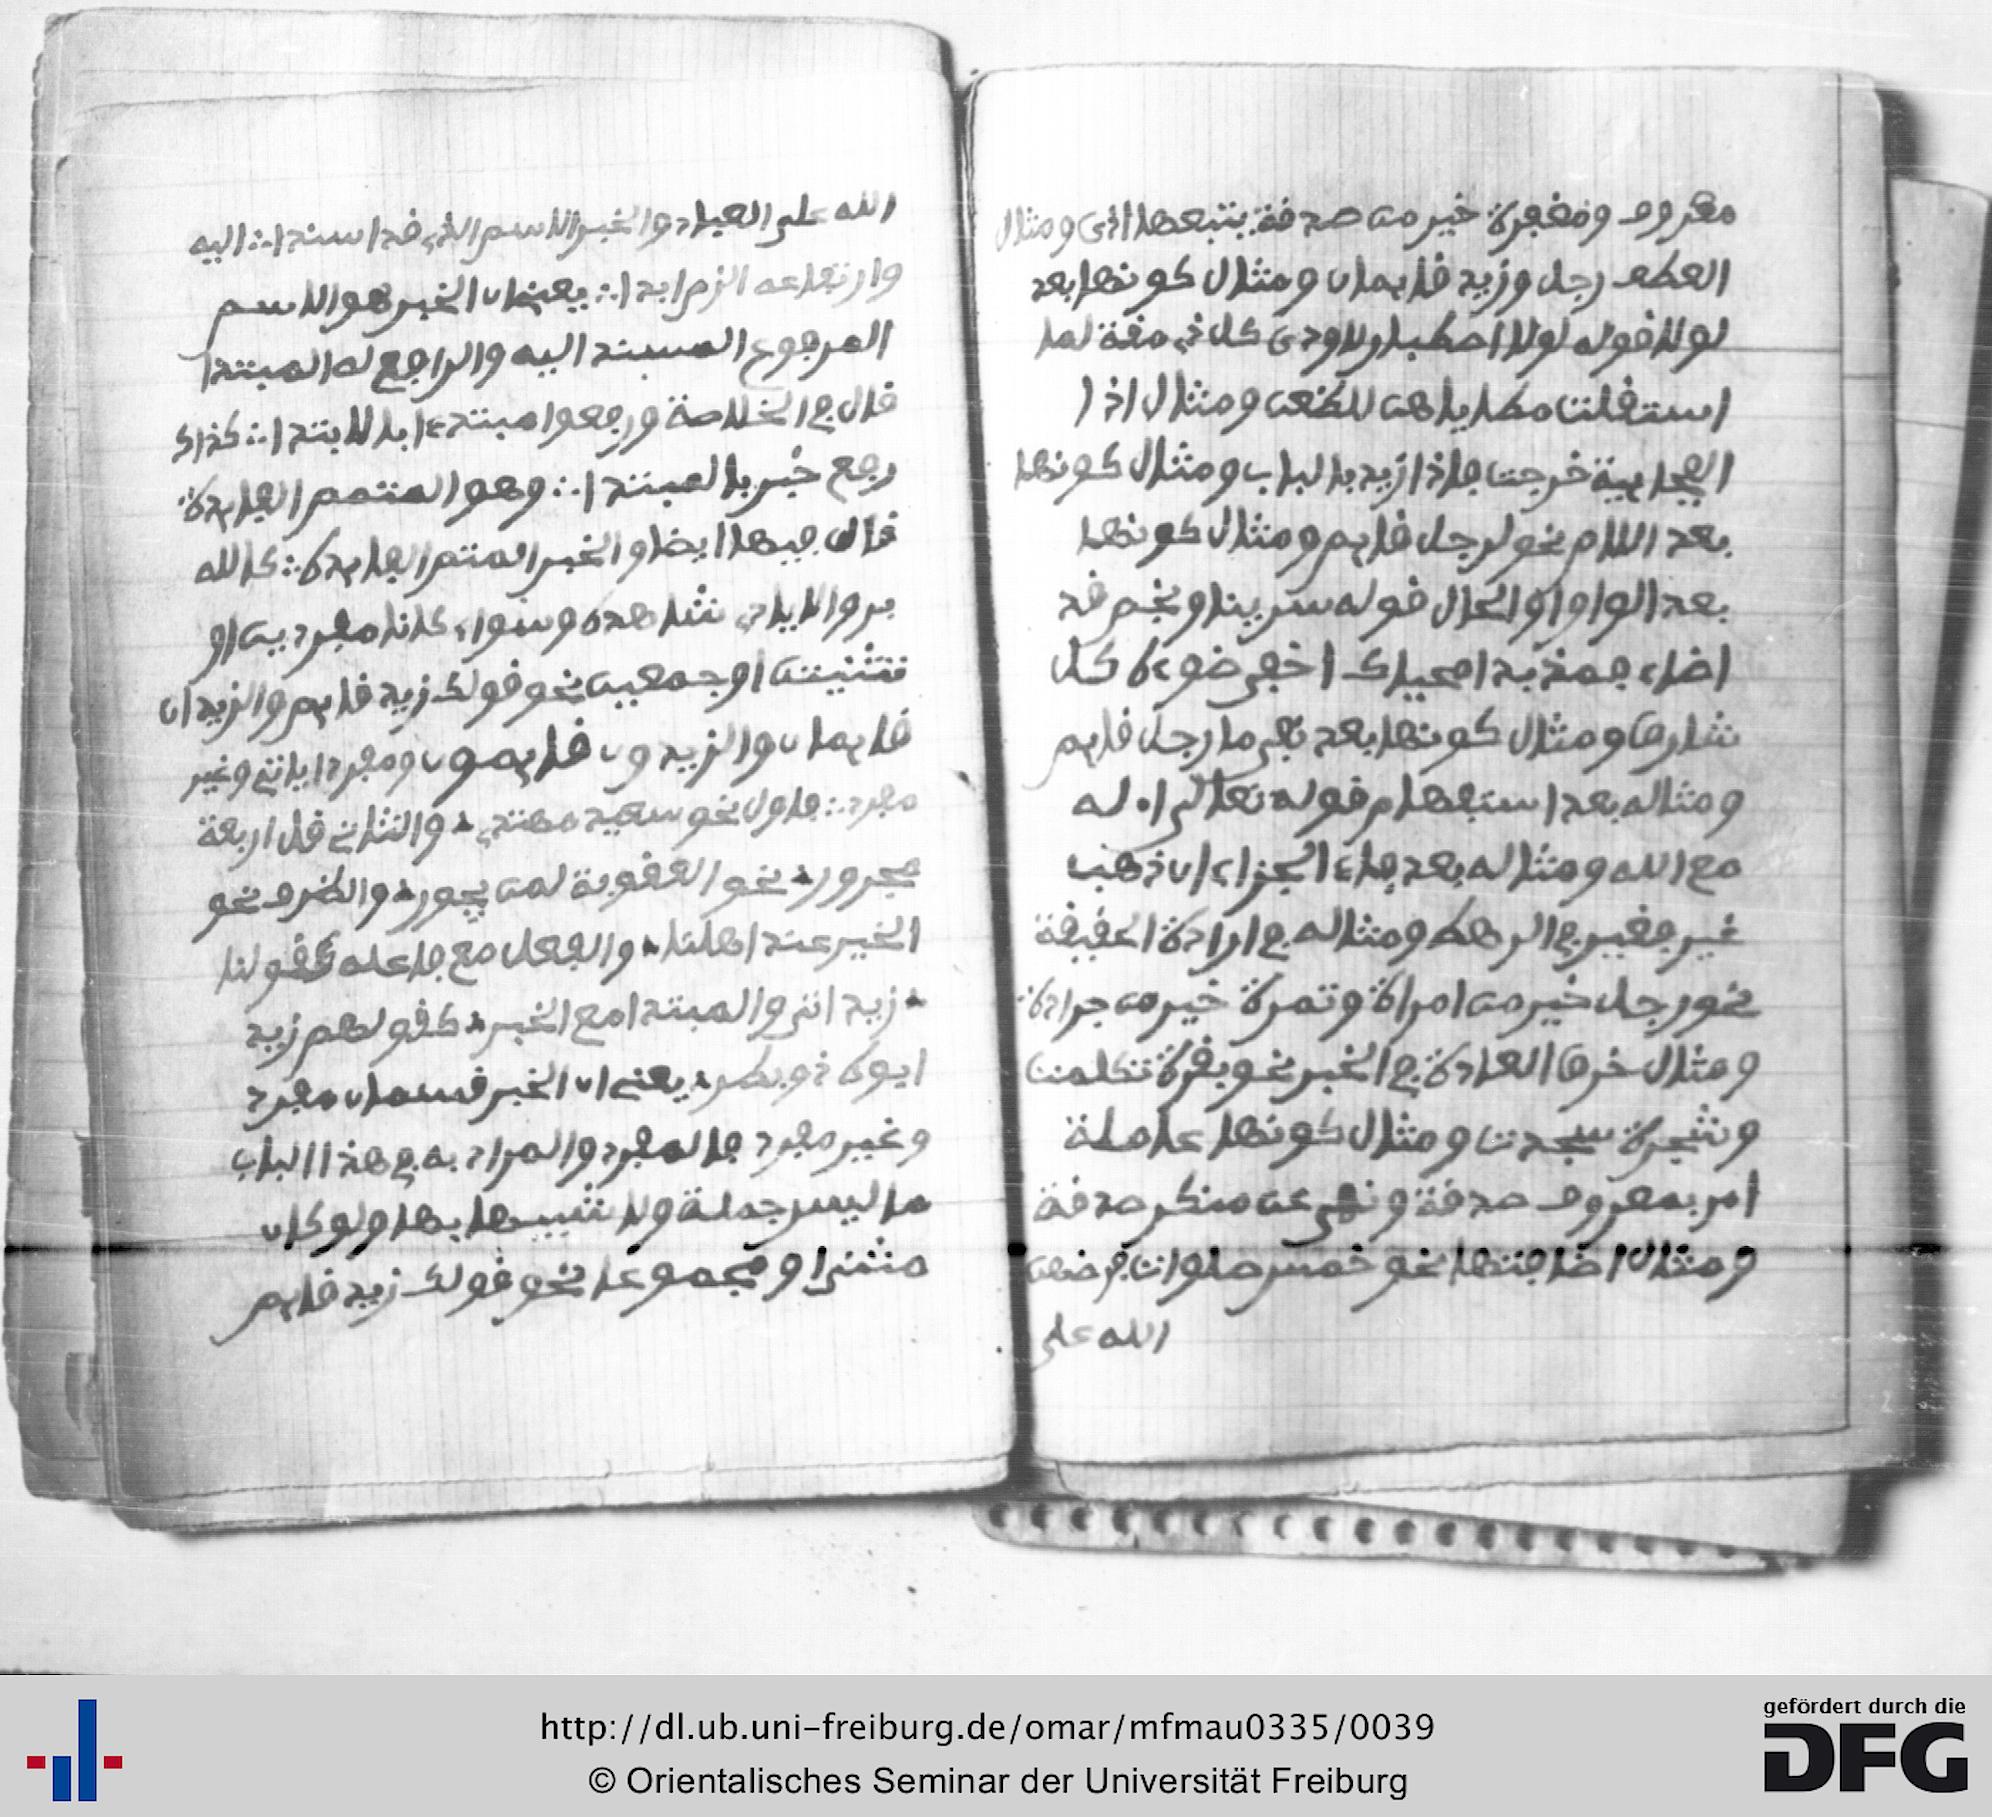 معروف ومغفرة خير من صدقة يتبعها اذى ومثال
العطف رجل وزيد قايمان ومثال كونها بعد
لولا قوله لولا اصطبار لاودى كل ذي مقة لما
استقلت مطاياهن للظعن ومثال اذا
الفجاىية خرجت فاذا زيد بالباب ومثال كونها
بعد اللام نحو لرجل قايم ومثال كونها
بعد الواو او الحال قوله سرينا ونجم قد
اضاء فمذ بدا محياك اخفى ضوءه كل
شارق ومثال كونها بعد نفي ما رجل قايم
ومثاله بعد استفهام قوله تعالى اءله
مع الله ومثاله بعد فاء الجزاء ان ذهب
غير فغير في الرهط ومثاله في ارادة الحقيقة
نحو رجل خير من امراة وتمرة خير من جرادة
ومثال خرق العادة في الخبر نحو بقرة تكلمت
وشجرة سجدت ومثال كونها عاملة
امر بمعروف صدقة ونهي عن منكر صدقة
ومثال اضافتها نحو خمس صلوات فرضهن
الله على
الله على العباد والخبر الاسم الذي قد اسندا ∴ اليه
وارتفاعه الزم ابدا ∴ يعني ان الخبر هو الاسم
المرجوع المسند اليه والراجع له المبتدا
قال في الخلاصة ورجعوا مبتدءا بالابتدا ∴ كذاك
رجع خبر بالمبتدا ∴ وهو المتمم الفايدة
قال فيها ايضا والخبر المتم الفايدة ∴ كالله
بر والايادي شاهده وسواء كانا مفردين او
تثنيتن او جمعين نحو قولك زيد قايم والزيدان
قايمان والزيدون قايمون ومفردا ياتي وغير
مفرد ∴ فاول نحو سعيد مهتدي والثاني قل اربعة
مجرور نحو العقوبة لمن يجور والظرف نحو
الخير عند اهلنا والفعل مع فاعله كقولنا
زيد اتى والمبتدا مع الخبر كقولهم زيد
ابوه ذو بطر يعني ان الخبر قسمان مفرد
وغير مفرد فالمفرد والمراد به في هذا الباب
ما ليس جملة ولا شبيها بها ولو كان
مثنى او مجموعا نحو قولك زيد قايم
http://dl.ub.uni-freiburg.de/omar/mfmau0335/0039
© Orientalisches Seminar der Universität Freiburg
gefördert durch die
DFG